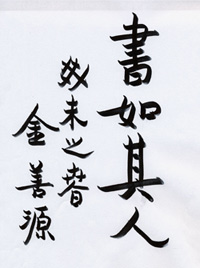 書如其人
癸未之春
金善源